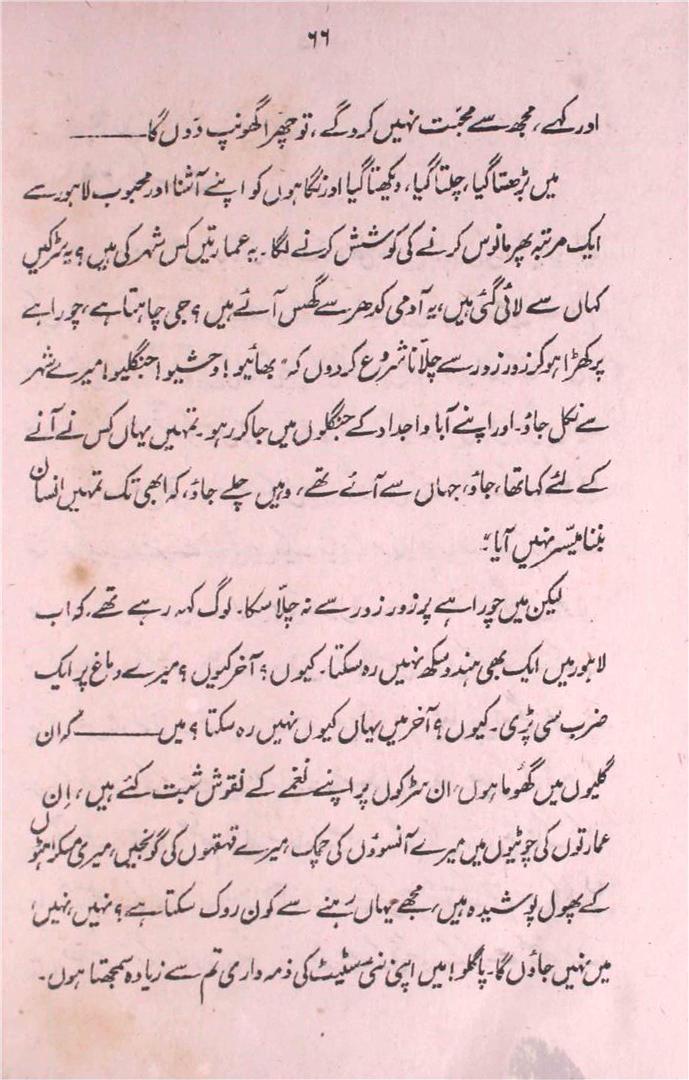 ۶۶
اور کہے، مجھ سے محبّت نہیں کرو گے، تو چھرا گھونپ دوں گا ———
میں بڑھتا گیا، چلتا گیا، دیکھتا گیا اور نگاہوں کو اپنے آشنا اور محبوب لاہور سے
ایک مرتبہ پھر مانوس کرنے کی کوشش کرنے لگا۔ یہ عمارتیں کس شہر کی ہیں؟ یہ سڑکیں
کہاں سے لائی گئی ہیں، یہ آدمی کدھر سے گھس آئے ہیں؟ جی چاہتا ہے، چوراہے
پر کھڑا ہو کر زور زور سے چلّانا شروع کر دوں کہ ”بھائیو! وحشیو! جنگلیو! میرے شہر
سے نکل جاؤ۔ اور اپنے آبا و اجداد کے جنگلوں میں جا کر رہو۔ تمہیں یہاں کس نے آنے
کے لئے کہا تھا، جاؤ، جہاں سے آئے تھے، وہیں چلے جاؤ، کہ ابھی تک تمہیں انسان
بننا میسّر نہیں آیا“۔
لیکن میں چوراہے پر زور زور سے نہ چلّا سکا۔ لوگ کہہ رہے تھے۔ کہ اب
لاہور میں ایک بھی ہندو سکھ نہیں رہ سکتا۔ کیوں؟ آخر کیوں؟ میرے دماغ پر ایک
ضرب سی پڑی۔ کیوں؟ آخر میں یہاں کیوں نہیں رہ سکتا؟ میں ——— کہ ان
گلیوں میں گھُوما ہوں، ان سڑکوں پر اپنے نغمے کے نقوش ثبت کئے ہیں، اِن
عمارتوں کی چوٹیوں میں میرے آنسوؤں کی چمک، میرے قہقہوں کی گونجیں، میری مسکراہٹوں
کے پھول پوشیدہ ہیں، مجھے یہاں رہنے سے کون روک سکتا ہے؟ نہیں، نہیں،
میں نہیں جاؤں گا۔ پاگلو! میں اپنی نئی سٹیٹ کی ذمہ داری تم سے زیادہ سمجھتا ہوں۔